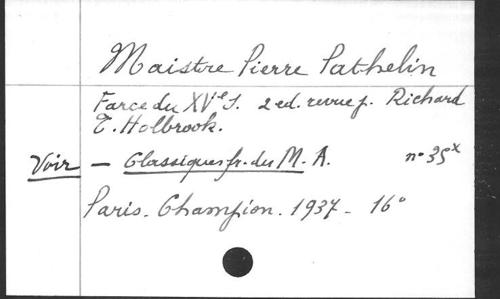 Maistre Pierre Pathelin
Farce du XVe S. 2 ed. revue p. Richard
T. Holbrook.
Voir — Classiques fr. du M. A. no 35x
Paris. Champion. 1937 - 16o